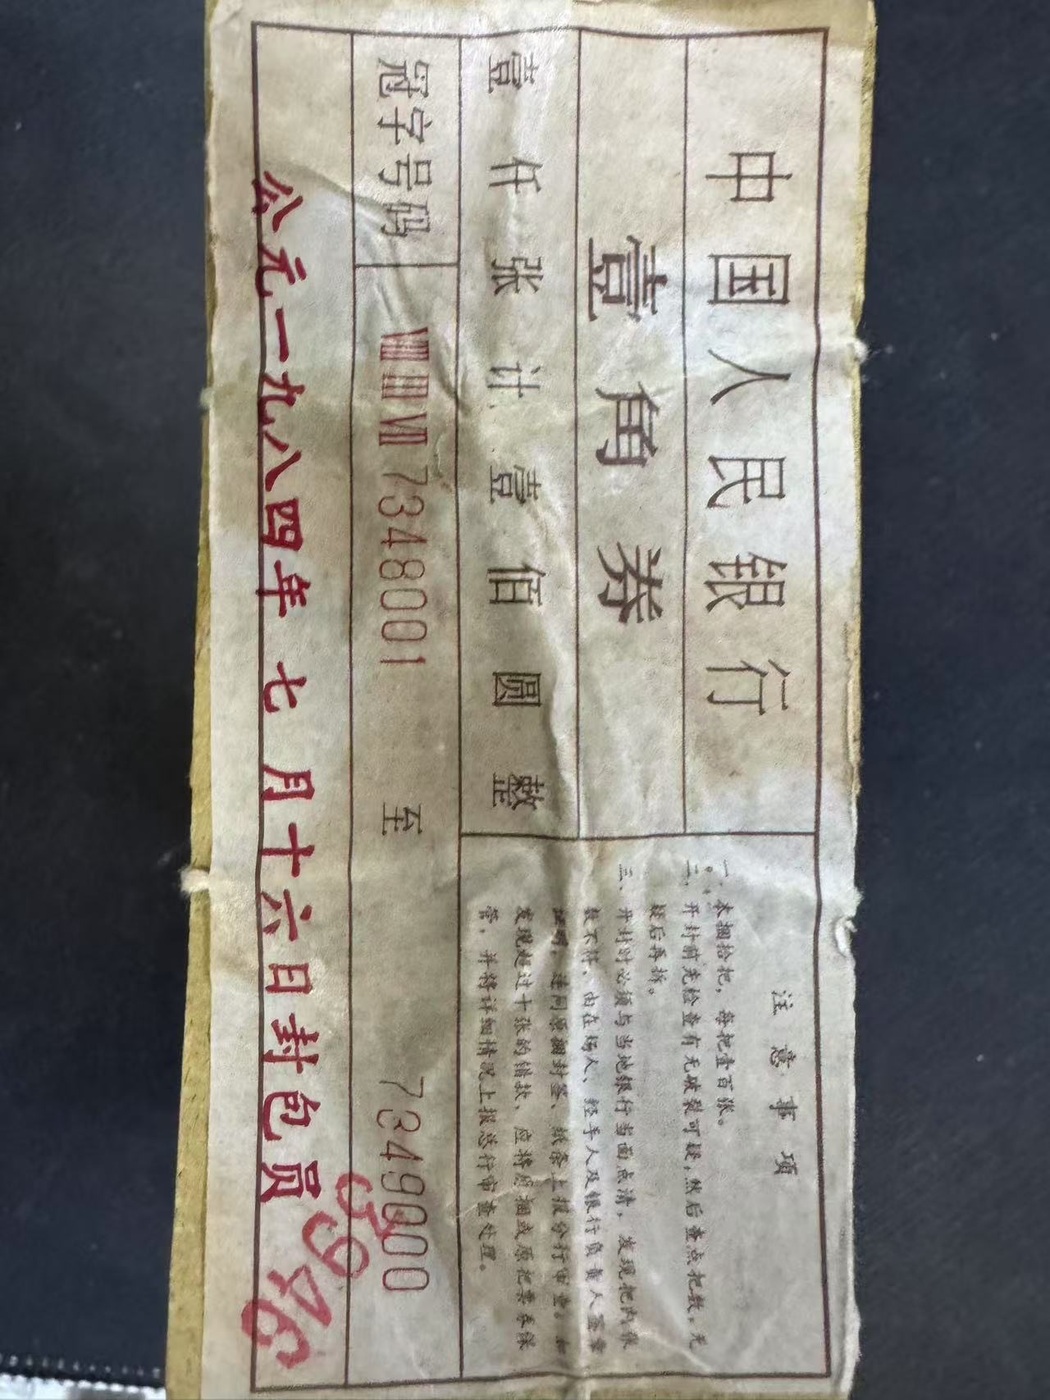 中国人民银行
壹角券
壹仟张计壹佰圆整
注意事项
一、本捆拾把，每把壹百张。
二、开封前先检查有无破裂可疑，然后查点把数，无
疑后再拆。
三、开封时必须与当地银行当面点清，发现把内张
数不符，由在场人、经手人及银行负责人签章
证明，连同原捆封签、纸条上报分行审查。如
发现超过十张的错款、应将原捆或原把票券保
管，并将详细情况上报总行审查处理。
冠字号码 ⅧⅢⅦ 7348001 至 7349000
公元一九八四年七月十六日封包员
3946